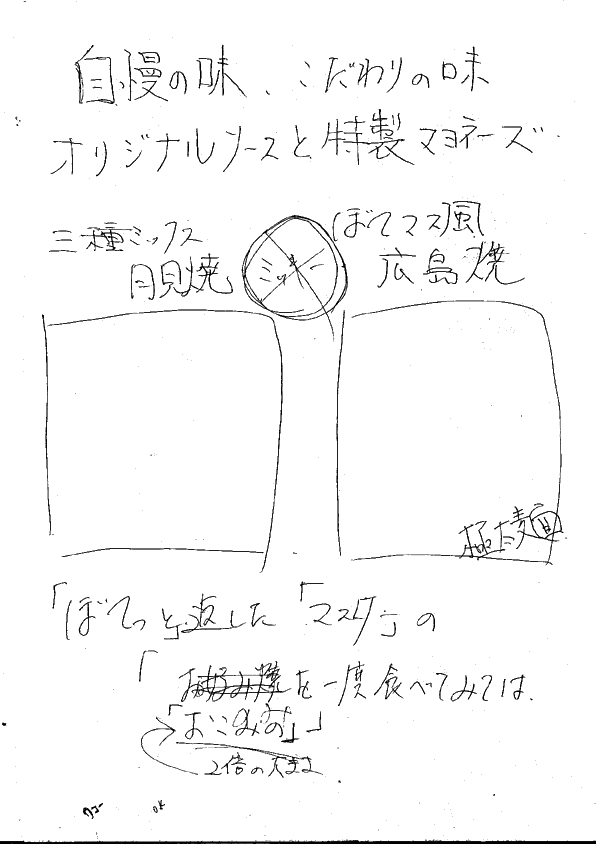 自慢の味、こだわりの味
オリジナルソースと特製マヨネーズ
三種ミックス
月見焼
ミッキー
ぼてマス風
広島焼
極太麺
「ぼてっと返した「マスター」の
「お好み焼を一度食べてみては
「おこのみお」」
2倍の大きさ
OK